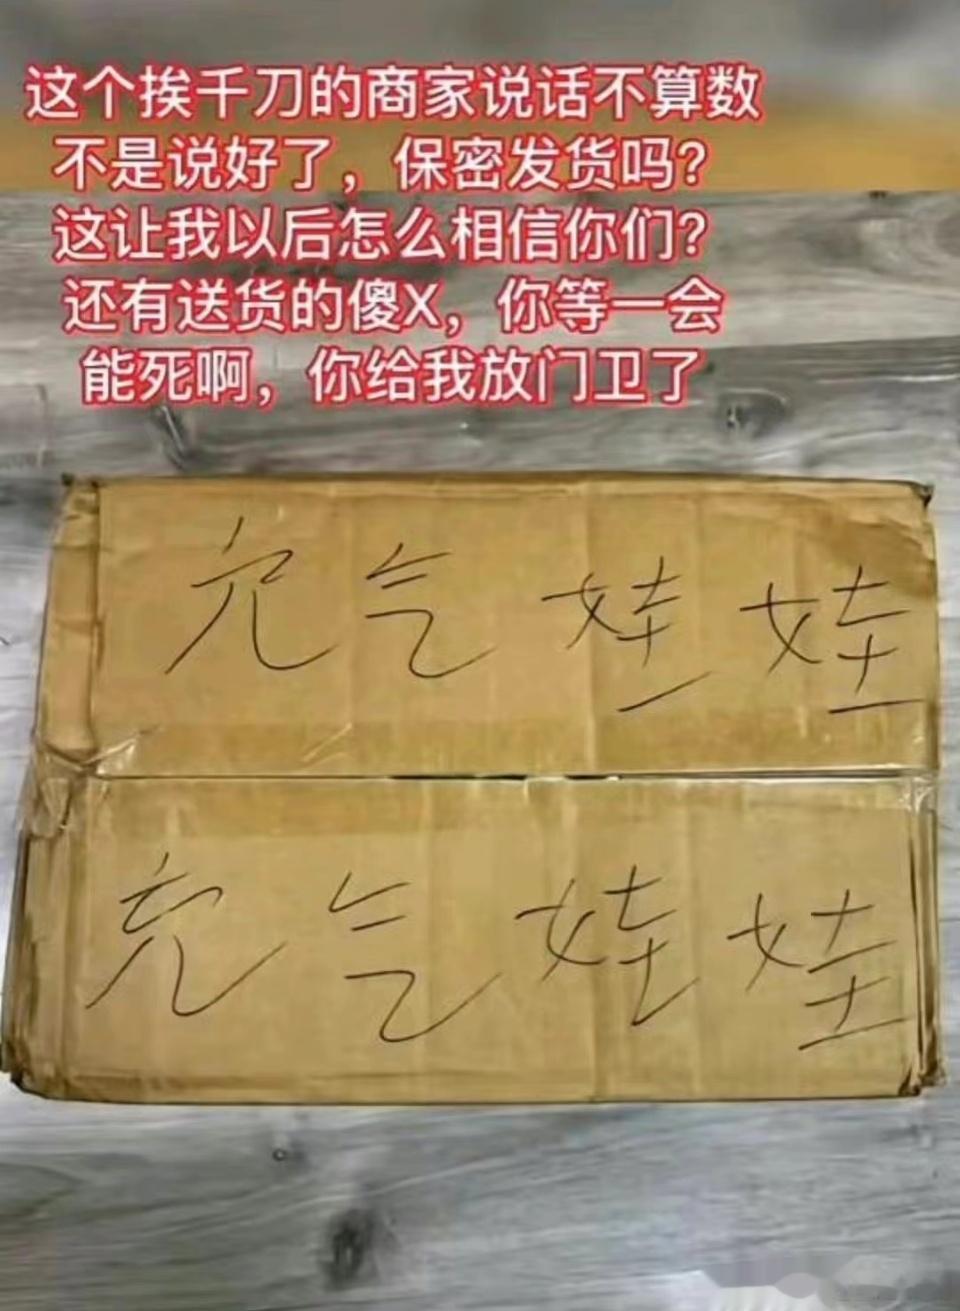 这个挨千刀的商家说话不算数
不是说好了，保密发货吗?
这让我以后怎么相信你们?
还有送货的傻X，你等一会
能死啊，你给我放门卫了
充气娃娃
充气娃娃